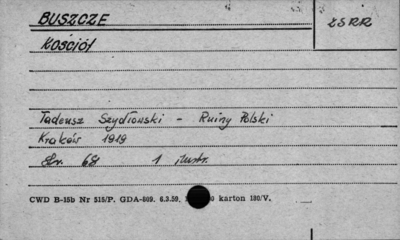 BUSZCZE
ZSRR
Kościół
Tadeusz Szydłowski - Ruiny Polski
Kraków 1919
Str. 68 1 ilustr.
CWD B-15b Nr 515/P. GDA-809. 6.3.59. karton 180/V.